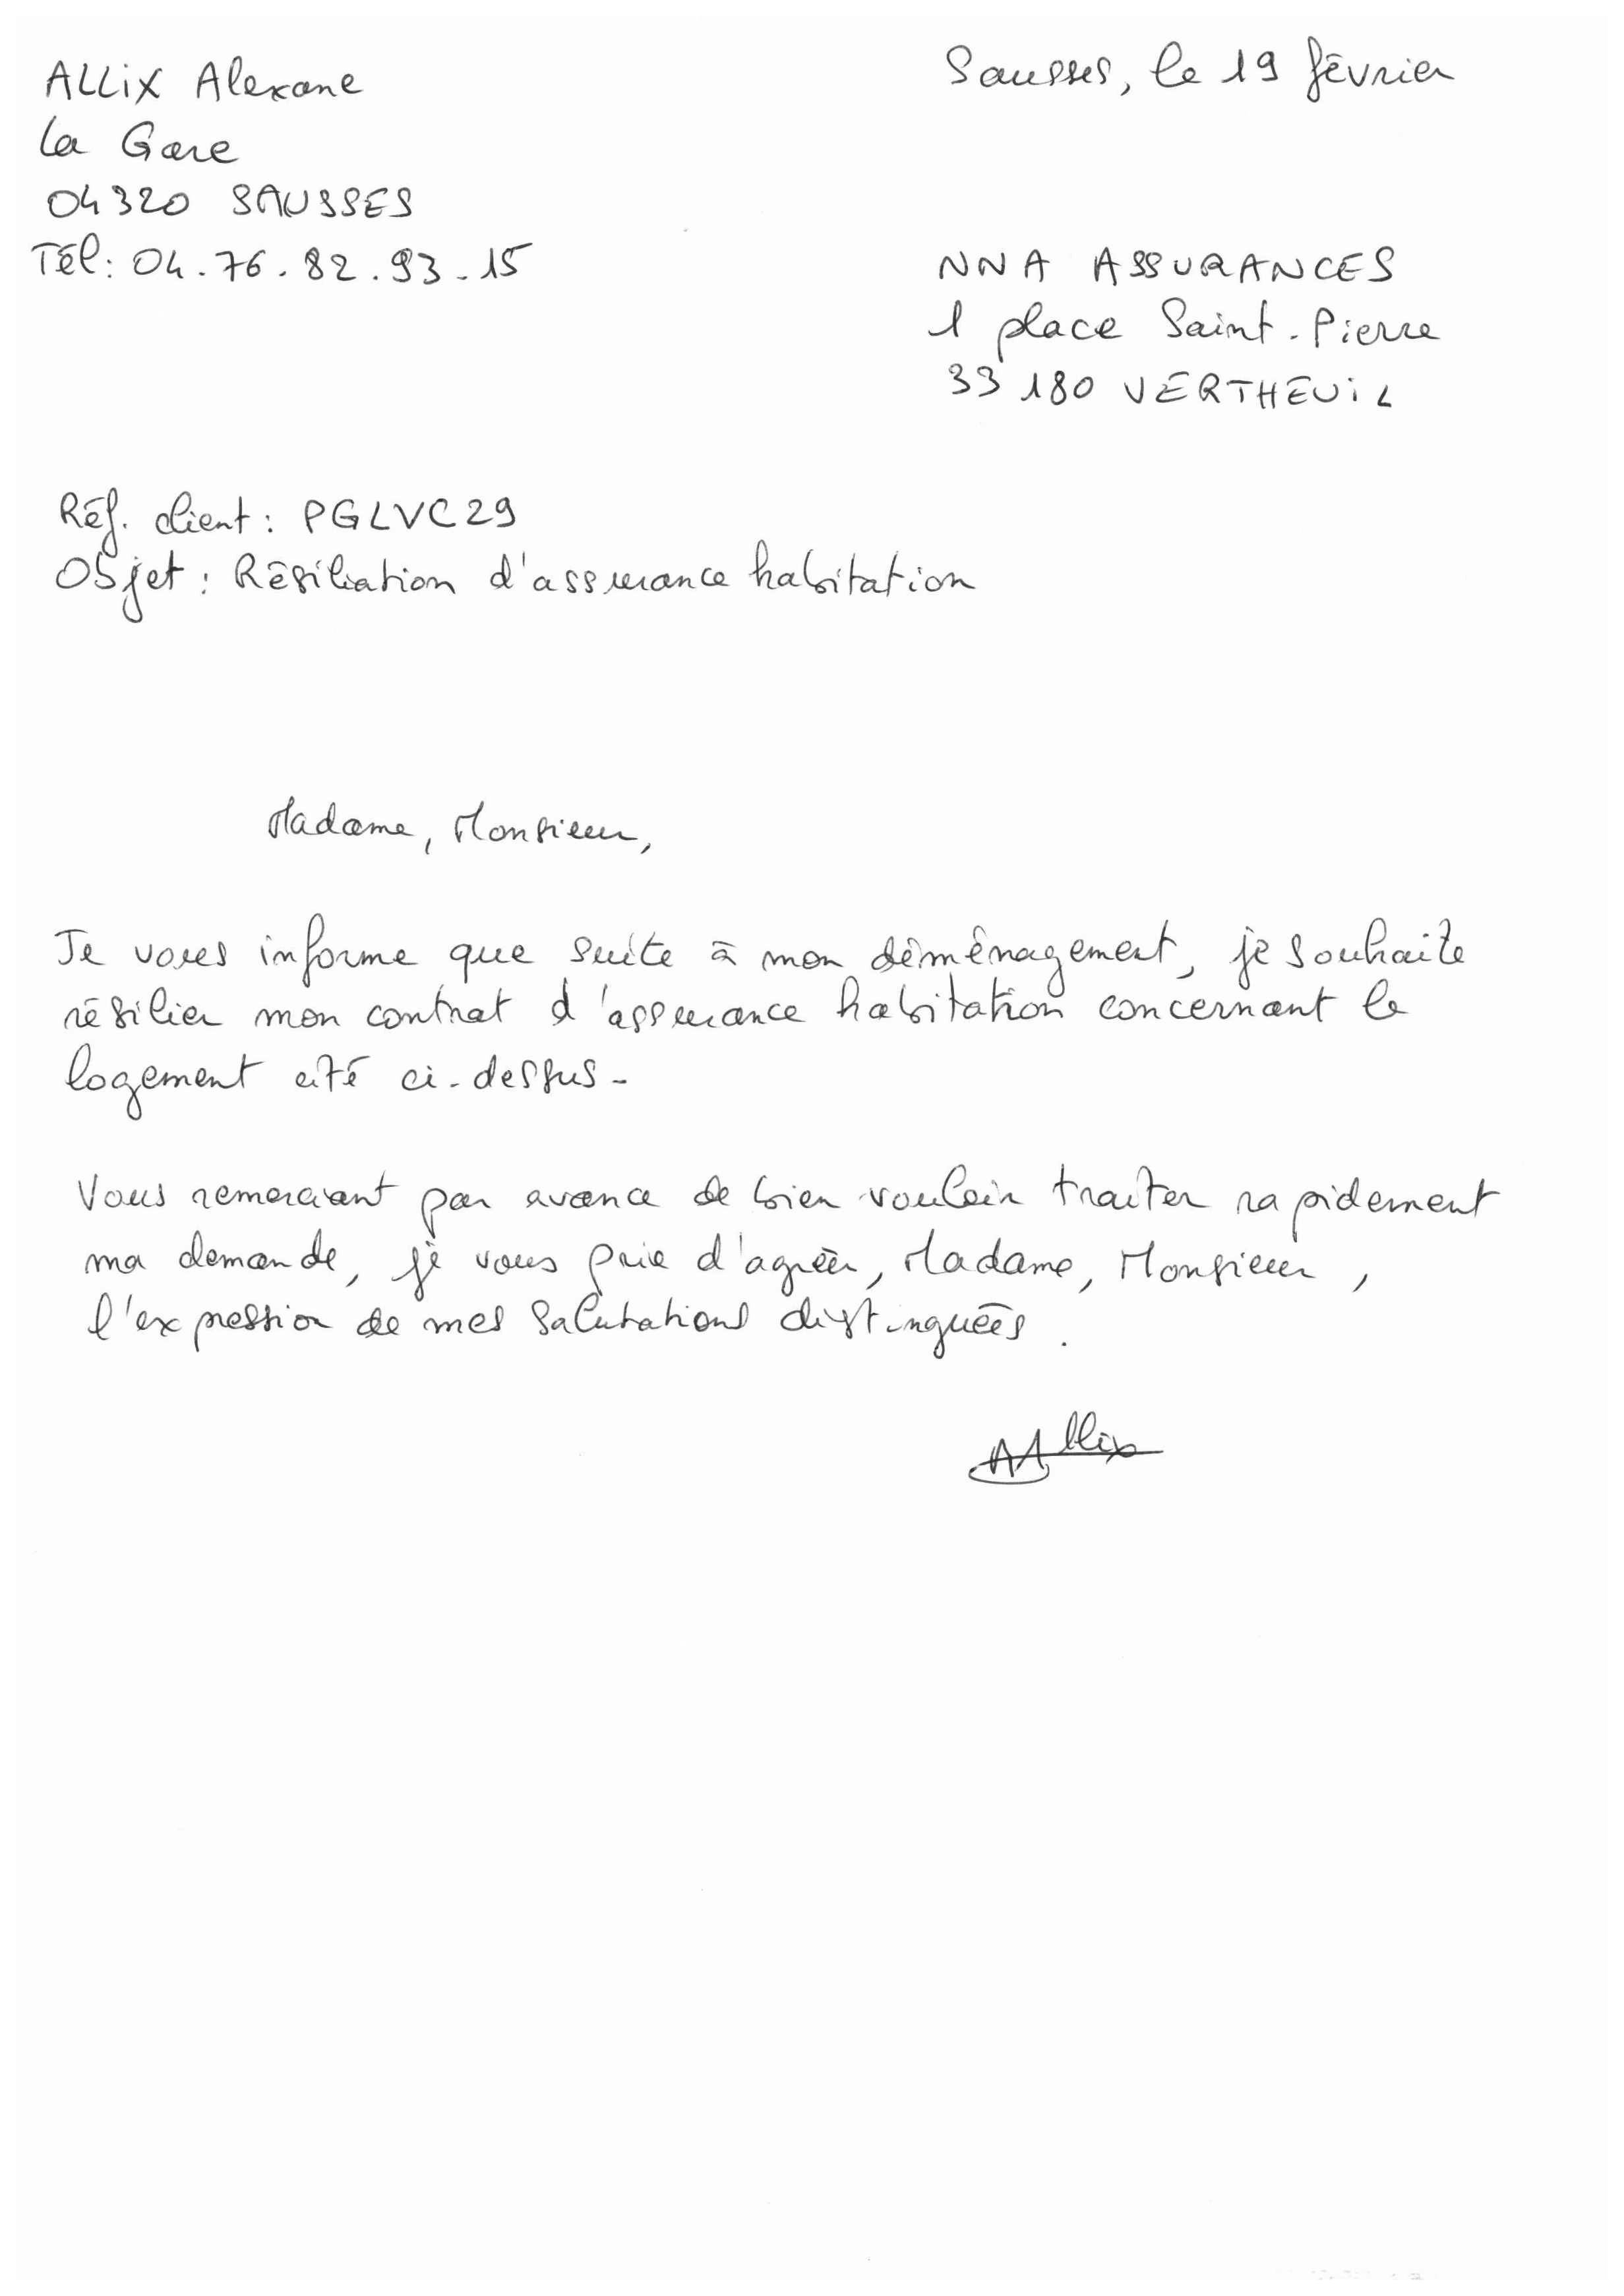 ALLIX Alexane
La Gare
04320 SAUSSES
Tél: 04.76.82.93.15
Sausses, le 19 février
NNA ASSURANCES
1 place Saint-Pierre
33180 VERTHEUIL
Réf. client: PGLVC29
Objet: Résiliation d'assurance habitation
Madame, Monsieur,
Je vous informe que suite à mon déménagement, je souhaite
résilier mon contrat d'assurance habitation concernant le
logement cité ci-dessus.
Vous remerciant par avance de bien vouloir traiter rapidement
ma demande, je vous prie d'agréer, Madame, Monsieur,
l'expression de mes salutations distinguées.
Allix